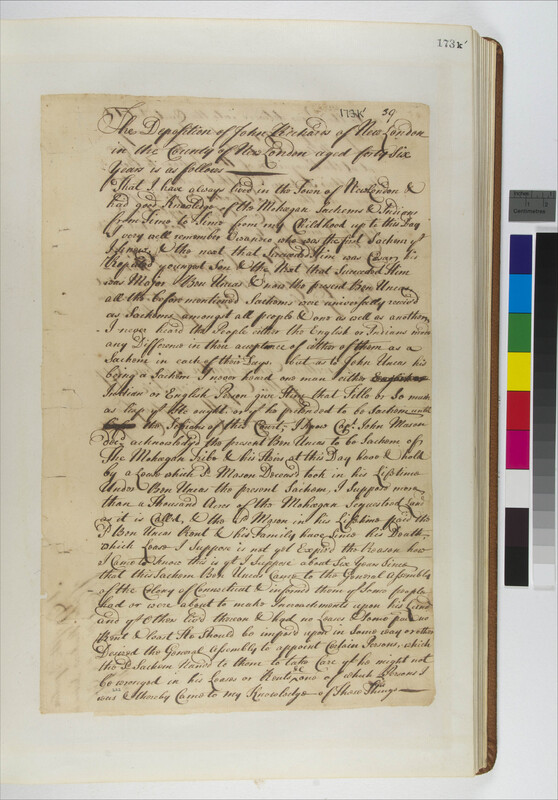 173k'
173k' 39
The Deposition of John Richards of New London
in the County of New London aged forty Six
Years is as follows
That I have always lived in the Town of New London &
had good Knowledge of the Mohagan Sachems & Indians
from Time to Time from my Childhood up to this Day
I very well remember Owaneco who was the first Sachem yt
I Knew, & the next that Succeeded Him was Cesar his
Reputed youngest Son & the Next that Succeeded Him
was Major Ben Uncas & now the present Ben Uncas
all the before mentioned Sachems were universally receivd
as Sachems amongst all people & one as well as another
I never heard the People either the English or Indians make
any Difference in their acceptance of either of them as a
Sachem in each of their Days. but as to John Uncas his
being a Sachem I never heard one man either
Indian or English Person give Him that Title or So much
as to say yt He ought, or yt he pretended to be Sachem until
the Sessions of this Court, I know Capt. John Mason
decd acknowledgd the present Ben Uncas to be Sachem of
the Mohagan Tribe & his Heirs at this Day have & hold
by a Lease which Sd Mason Deceasd took in his Lifetime
Under Ben Uncas the present Sachem, I Suppose more
than a Thousand Acres of the Mohagan Sequestred Land
as it is Calld, & the Sd Mason in his Lifetime paid the
Sd Ben Uncas Rent & his Family have Since his Death,
which Lease I Suppose is not yet Expird the Reason how
I Came to know this is yt I Suppose about Six Years Since
that this Sachem Ben Uncas Came to the General Assembly
of the Colony of Connecticut & informd them yt Some people
had or were about to make Incroachments upon his Land
and yt Others livd thereon & had no Leases & Some paid no
Rent & least He Should be imposd upon in Some way or other
Desired the General Assembly to appoint Certain Persons, which
the Sd Sachem Namd to them to take Care yt he might not
be wrongd in his Leases or Rents, one of which Persons I
was & thereby Came to my Knowledge of These Things